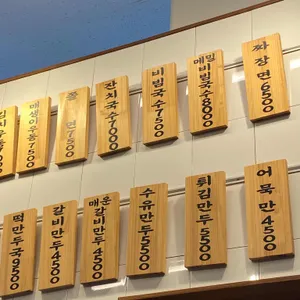 김치우동7000
매생이우동7500
쫄면7500
잔치국수7000
비빔국수7500
메밀비빔국수8000
짜장면6500
떡만두국9500
갈비만두4500
매운갈비만두4500
수유만두5500
튀김만두5500
어묵만4500